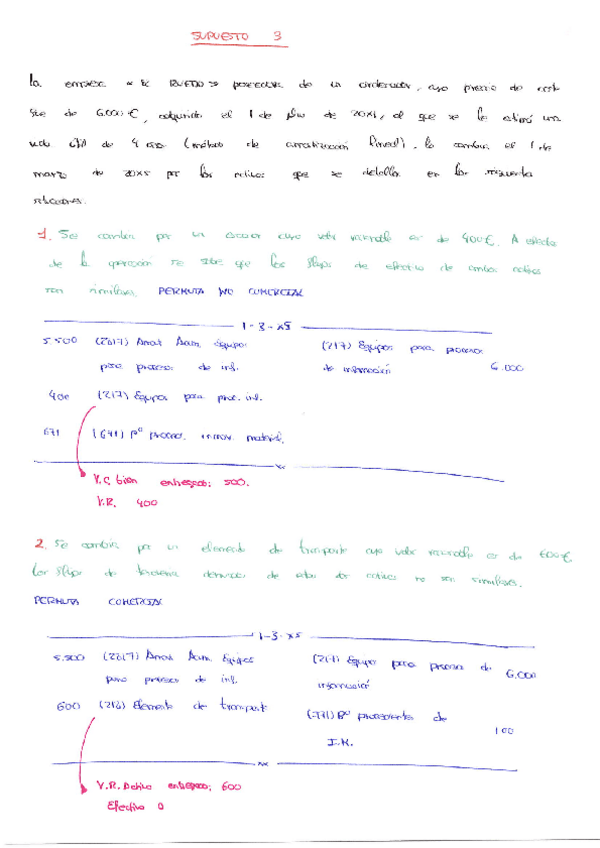 SUPUESTO 3
La empresa « EL RUEDO » poseedora de un ordenador, cuyo precio de cost
fue de 6.000 €, adquirido el 1 de de 20X1, al que se le estimó una
vida útil de 4 años (método de amortización lineal), lo cambia el 1 de
marzo de 20X5 por los activos que se detallan en las siguientes
situaciones.
1. Se cambia por un cuyo valor razonable es de 400 €. A efectos
de la operación se sabe que los flujos de efectivo de ambos activos
son similares. PERMUTA NO COMERCIAL
1-3-X5
5.500 (2817) Amort. Acum. Equipos (217) Equipos para procesos
para procesos de inf. de información 6.000
400 (217) Equipos para proc. inf.
671 (671) Pº proced. inmov. material.
V.C. bien entregado: 500.
V.R. 400
2. Se cambia por un elemento de transporte cuyo valor razonable es de 600 €
Los flujos de derivados de estos dos activos no son similares.
PERMUTA COMERCIAL
1-3-X5
5.500 (2817) Amort. Acum. Equipos (217) Equipos para procesos de 6.000
para procesos de inf. información
600 (218) Elementos de transporte (771) Bº procedente de 100
I.M.
V.R. Activo entregado: 600
Efectivo 0